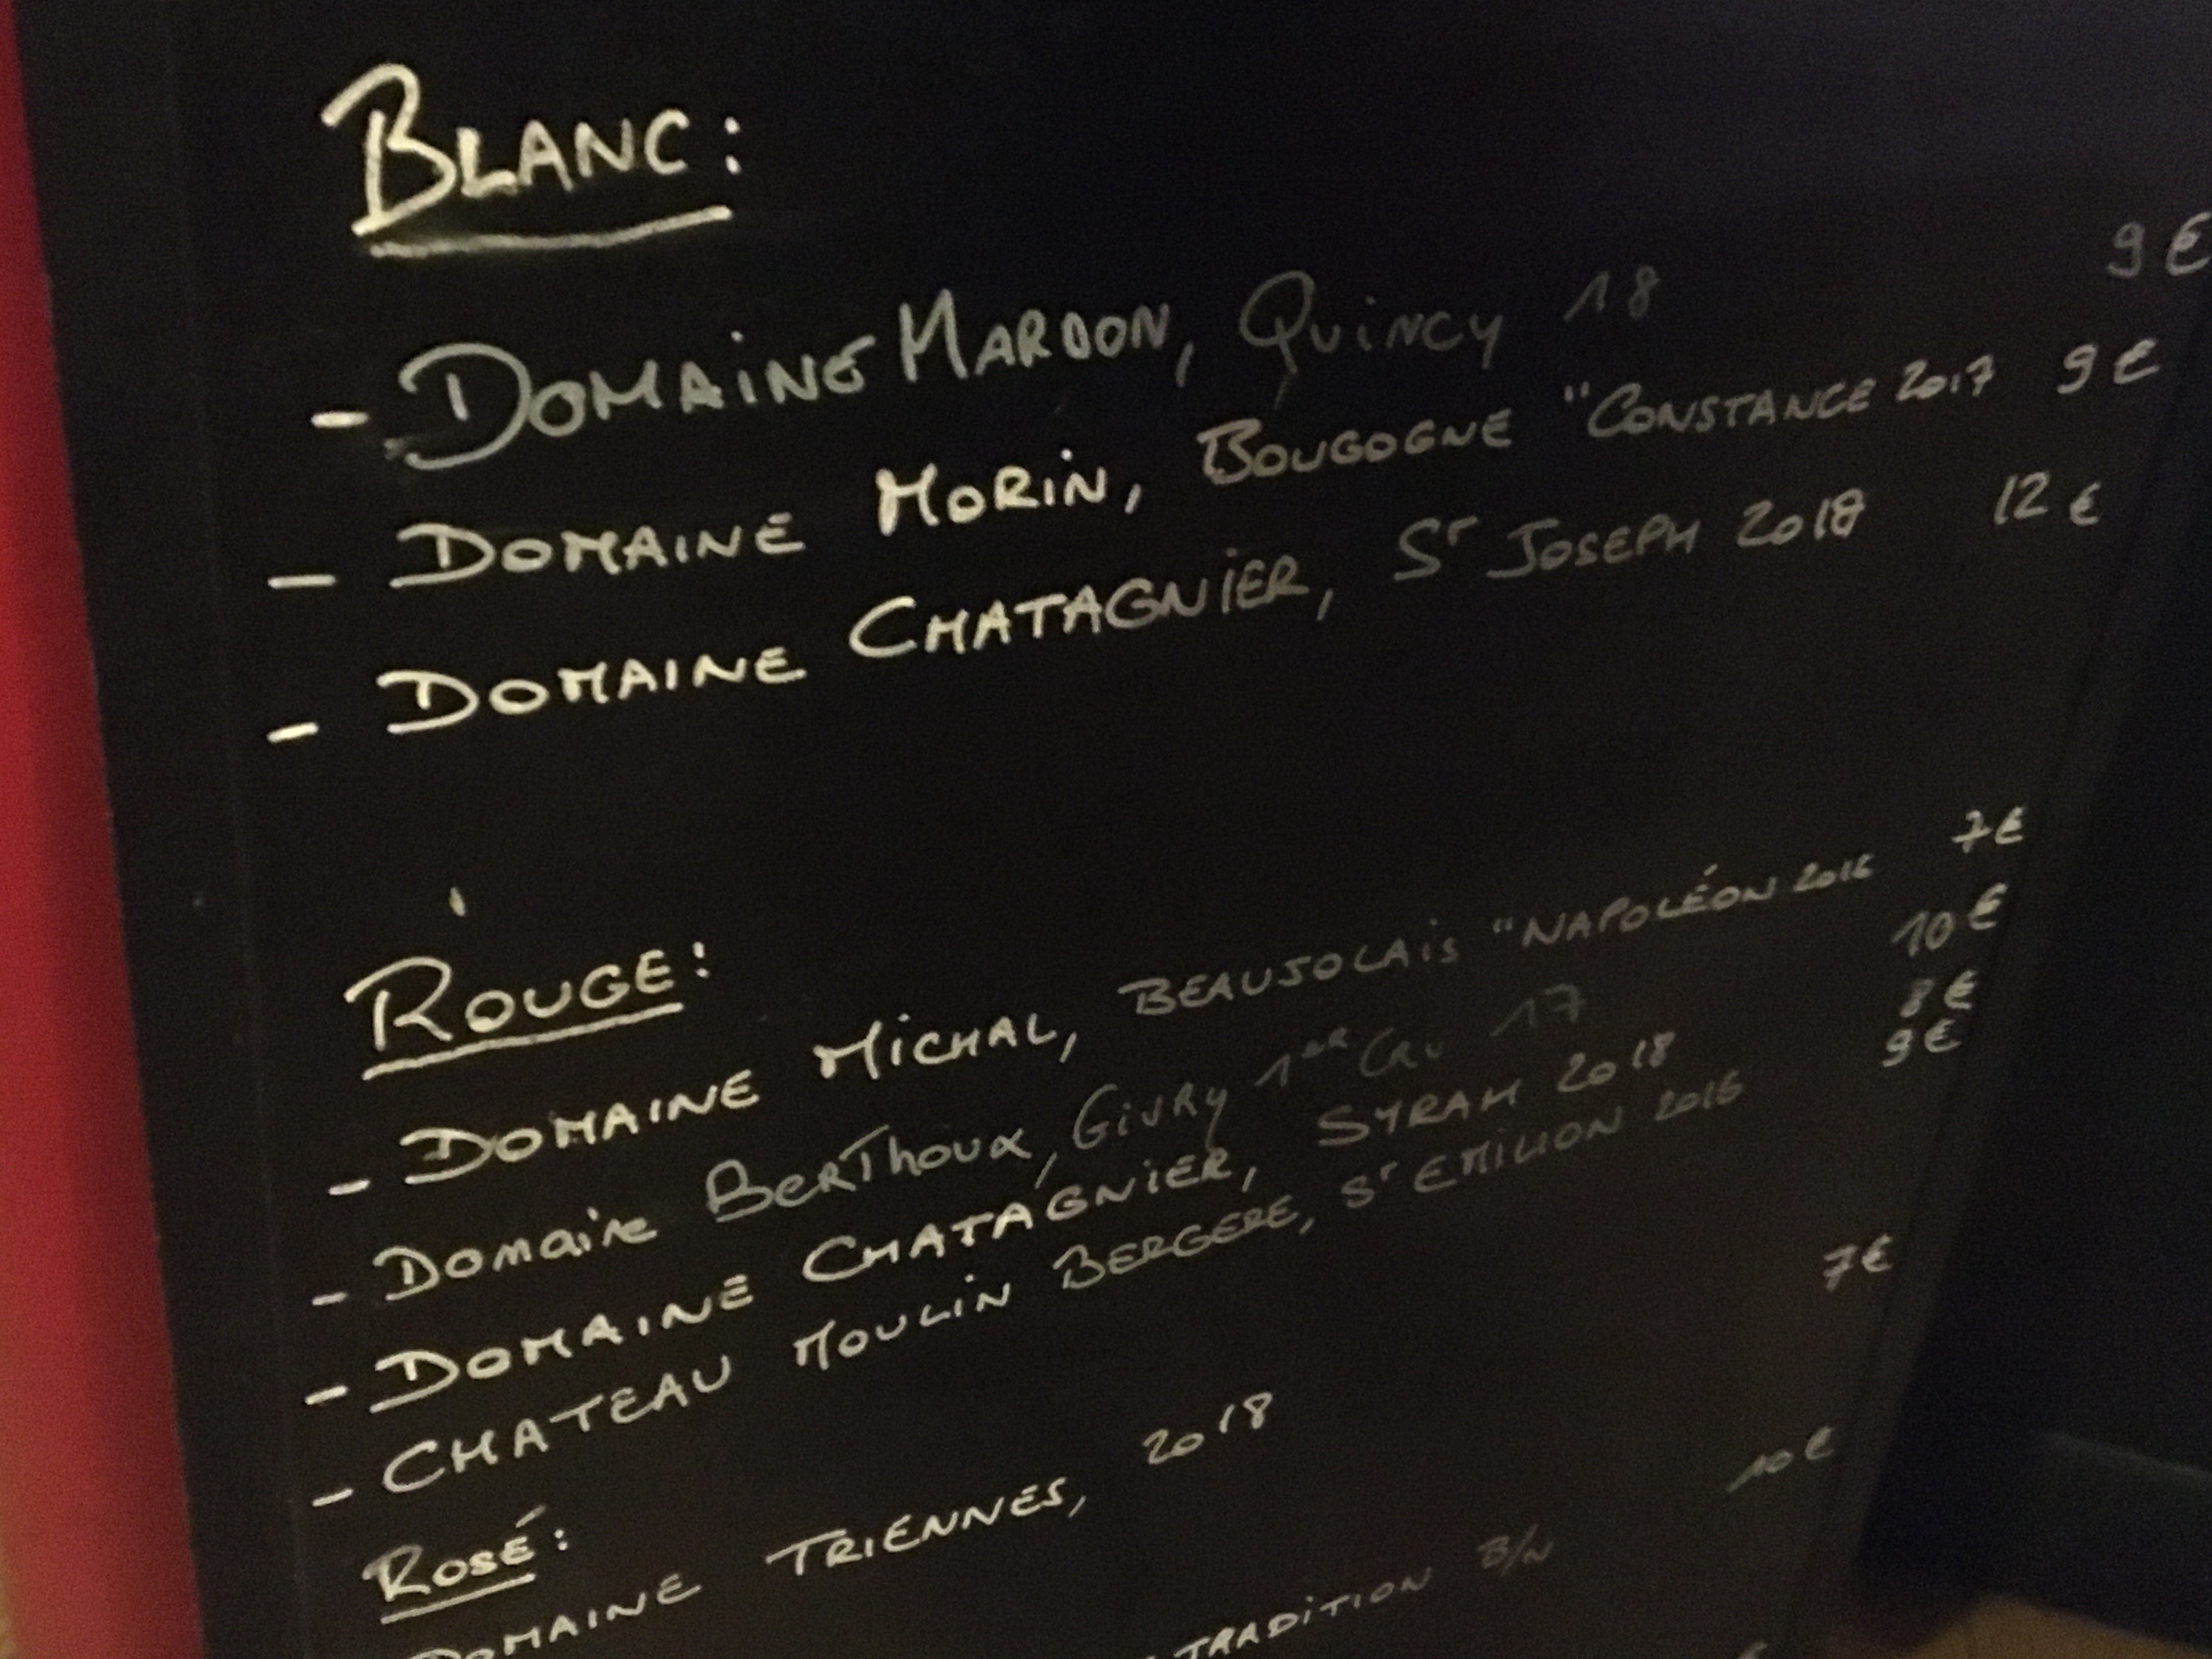 BLANC:
- DOMAINE MARDON, QUINCY 18 9€
- DOMAINE MORIN, BOUGOGNE "CONSTANCE 2017 9€
- DOMAINE CHATAGNIER, ST JOSEPH 2018 12€
ROUGE:
- DOMAINE MICHAL, BEAUJOLAIS "NAPOLÉON 2016 7€
- Domaine BERThoux, GIVRY 1ER CRU 17 10€
- DOMAINE CHATAGNIER, SYRAH 2018 8€
- CHATEAU MOULIN BERGERE, ST EMILION 2016 9€
ROSÉ:
DOMAINE TRIENNES, 2018 7€
TRADITION B/N 10€